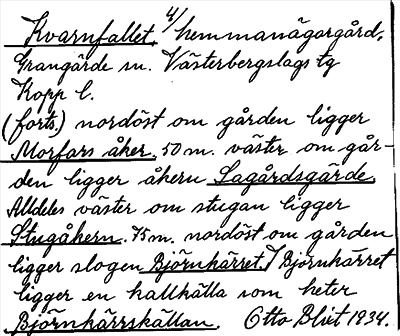 Kvarnfallet. 4/ hemmanägargård.
Grangärde sn. Västerbergslags tg
Kopp l.
(forts.) nordöst om gården ligger
Morfars åker. 50 m. väster om går-
den ligger åkern Lagårdsgärde.
Alldeles väster om stugan ligger
Stugåkern. 75 m. nordöst om gården
ligger slogen Björnkärret. I Björnkärret
ligger en kallkälla som heter
Björnkärrskällan. Otto Blixt 1934.